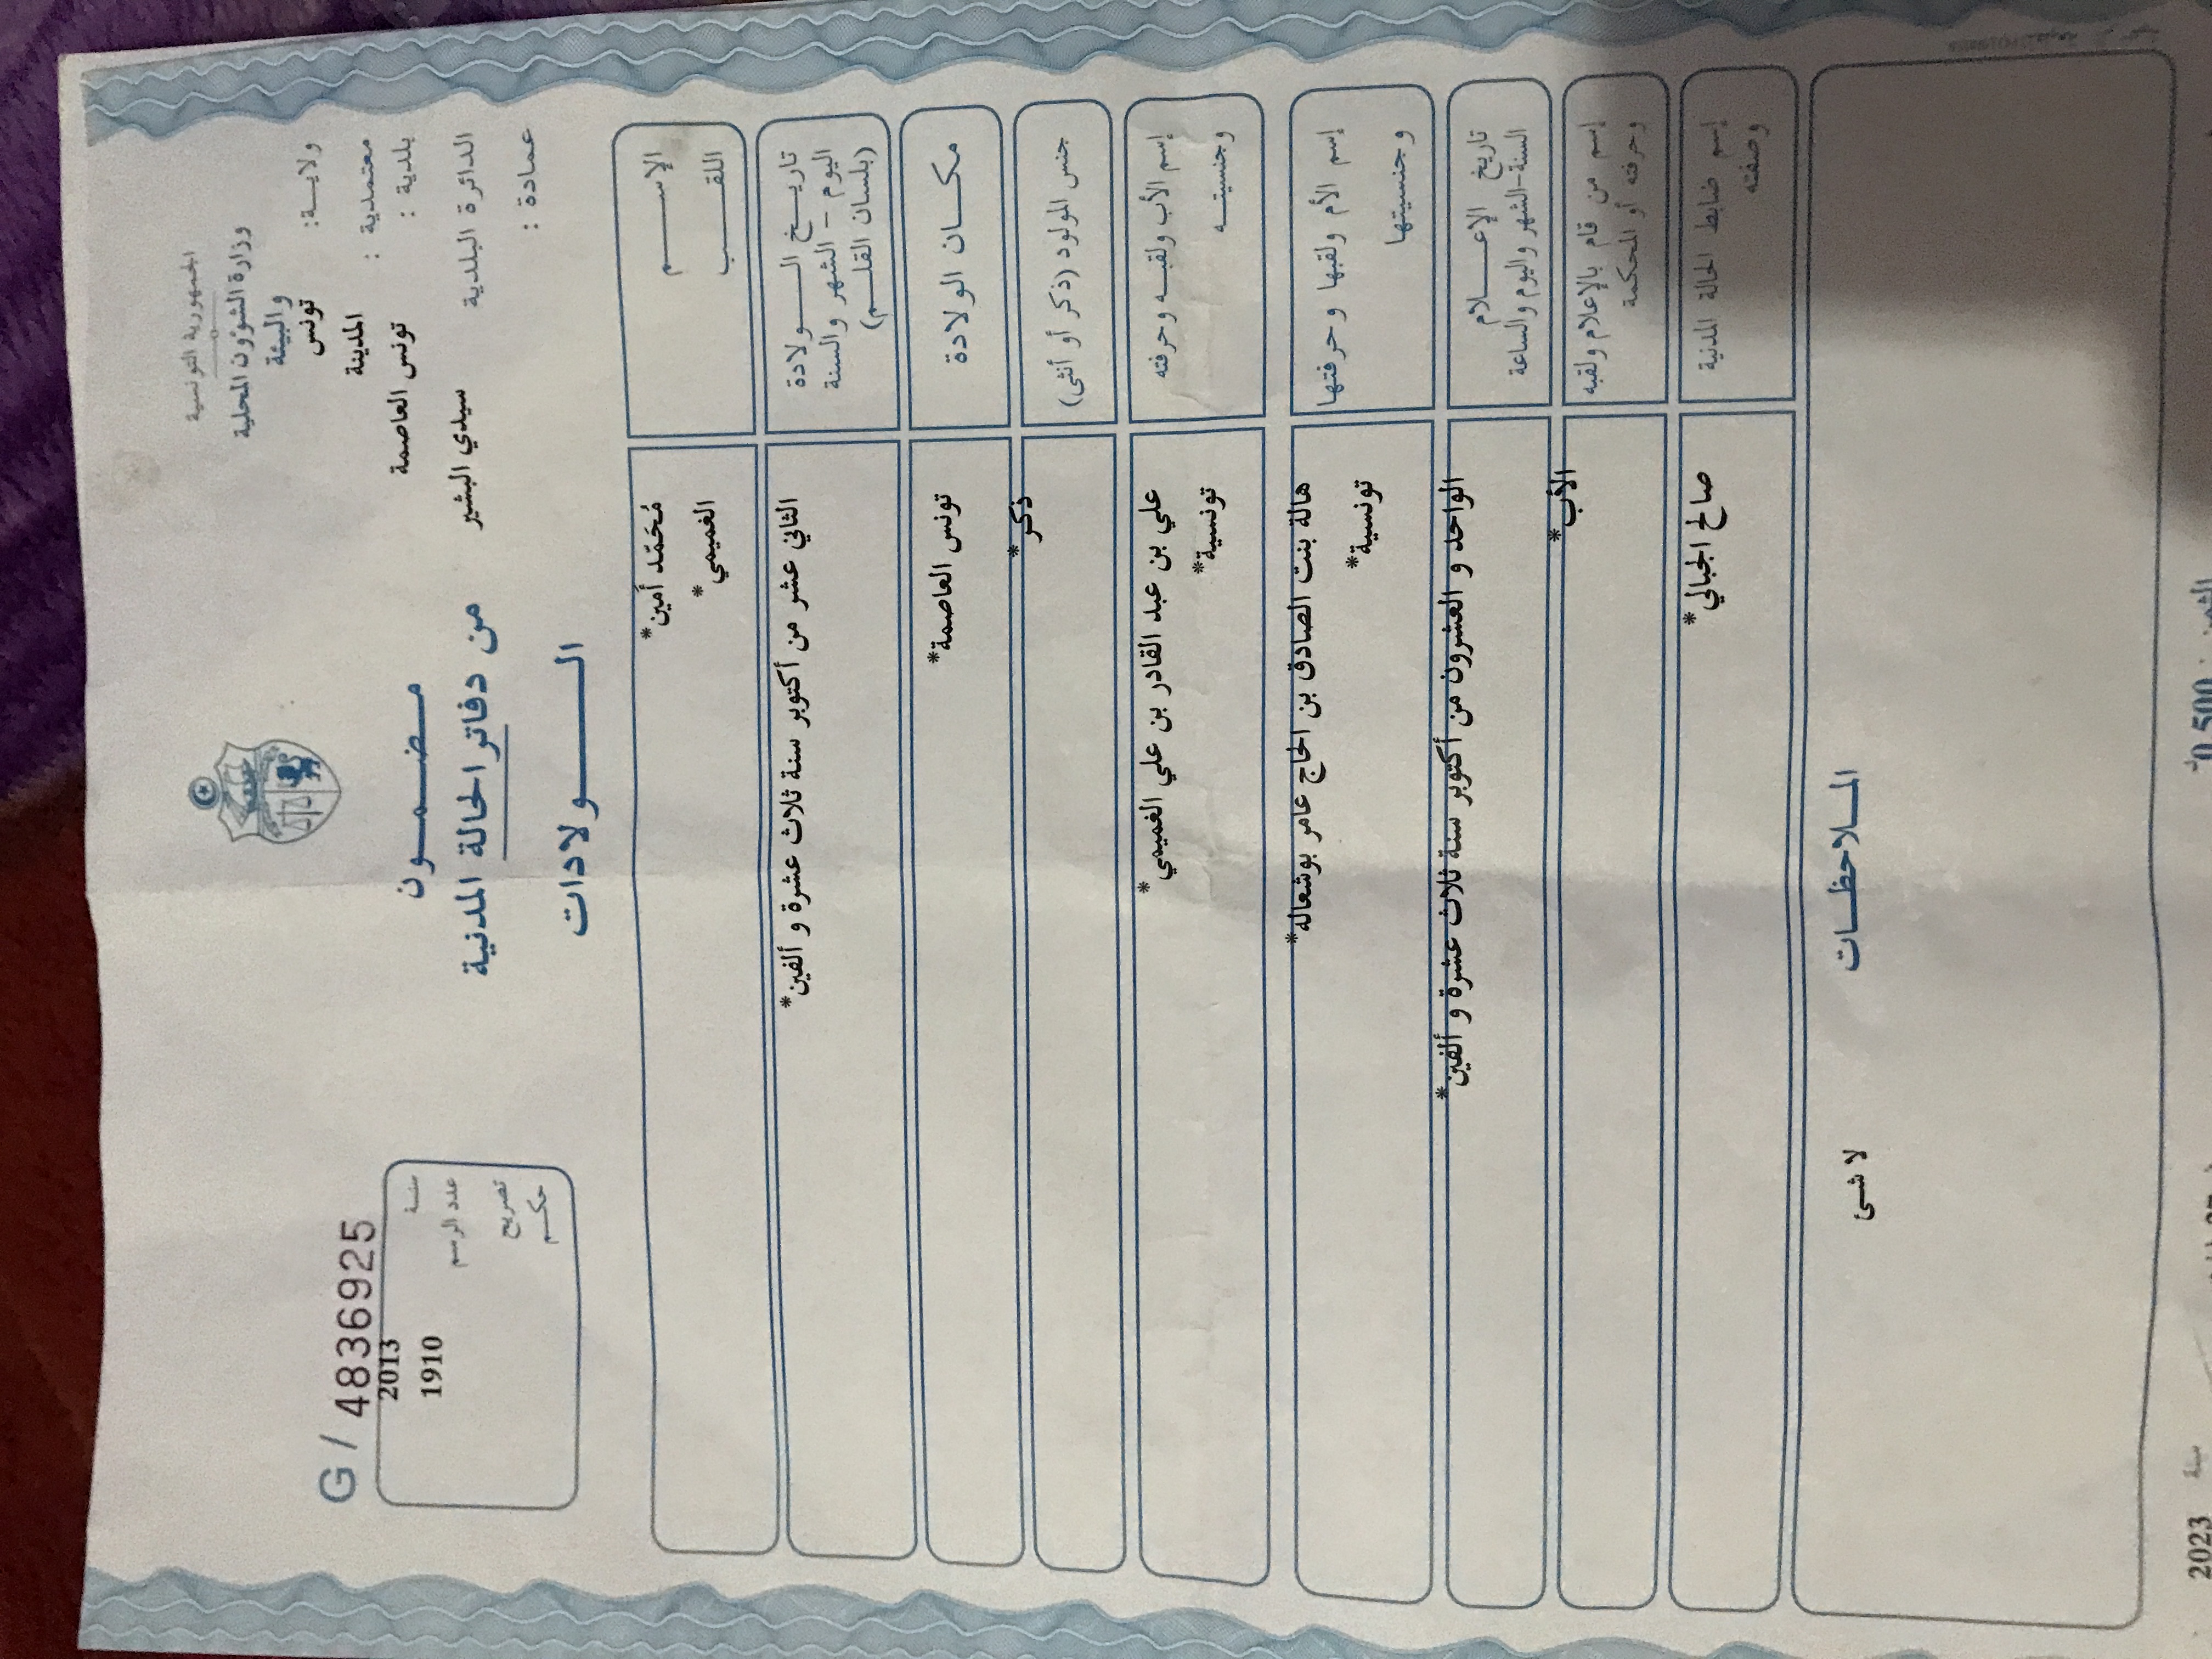 الجمهورية التونسية
وزارة الشؤون المحلية
والبيئة
ولايــة: تونس
معتمدية : المدينة
بلدية : تونس العاصمة
الدائرة البلدية سيدي البشير
عمادة :
G / 4836925
سنــة 2013
عدد الرسم 1910
تصريح
حكــم
مضمــون
من دفاتر الحالة المدنية
الــولادات
الإســـم مُحَمّد أمين*
اللقــب الغميمي*
تاريــخ الــولادة
اليوم – الشهر والسنة
(بلسان القلــم)
الثاني عشر من أكتوبر سنة ثلاث عشرة و ألفين*
مكــان الولادة تونس العاصمة*
جنس المولود (ذكر أو أنثى) ذكر*
إسم الأب ولقبــه وحرفته علي بن عبد القادر بن علي الغميمي*
وجنسيتــه تونسية*
إسم الأم ولقبها وحرفتها هالة بنت الصادق بن الحاج عامر بوشعاله*
وجنسيتها تونسية*
تاريخ الإعــلام
السنة-الشهر واليوم والساعة
الواحد و العشرون من أكتوبر سنة ثلاث عشرة و ألفين*
إسم من قام بالإعلام ولقبه
وحرفته أو المحكمة
الأب*
إسم ضابط الحالة المدنية
وصفته
صالح الجبالي*
المــلاحظــات
لا شئ
0,500
سنة 2023